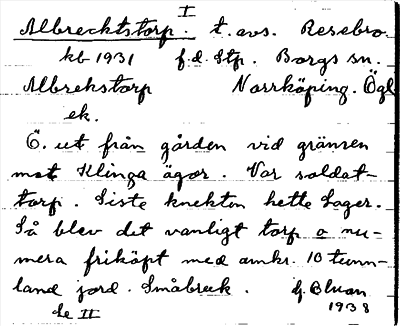 I
Albrechtstorp. t. avs. Resebro.
kb 1931 f.d. Stp. Borgs sn.
Albrekstorp Norrköping. Ögl
ek.
Ö. ut från gården vid gränsen
mot Klinga ägor. Var soldat-
torp. Siste knekten hette Lager.
Så blev det vanligt torp o nu-
mera friköpt med omkr. 10 tunn-
land jord. Småbruk.
1938
Se II